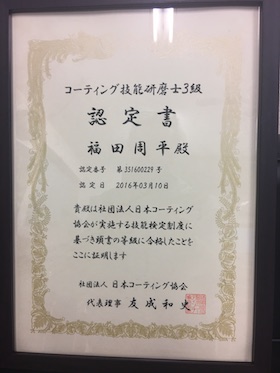 コーティング技能研磨士3級
認定書
福田周平殿
認定番号 第351600229号
認定日 2016年03月10日
貴殿は社団法人日本コーティング
協会が実施する技能検定制度に
基づき頭書の等級に合格したことを
ここに証明します
社団法人 日本コーティング協会
代表理事 友成和史